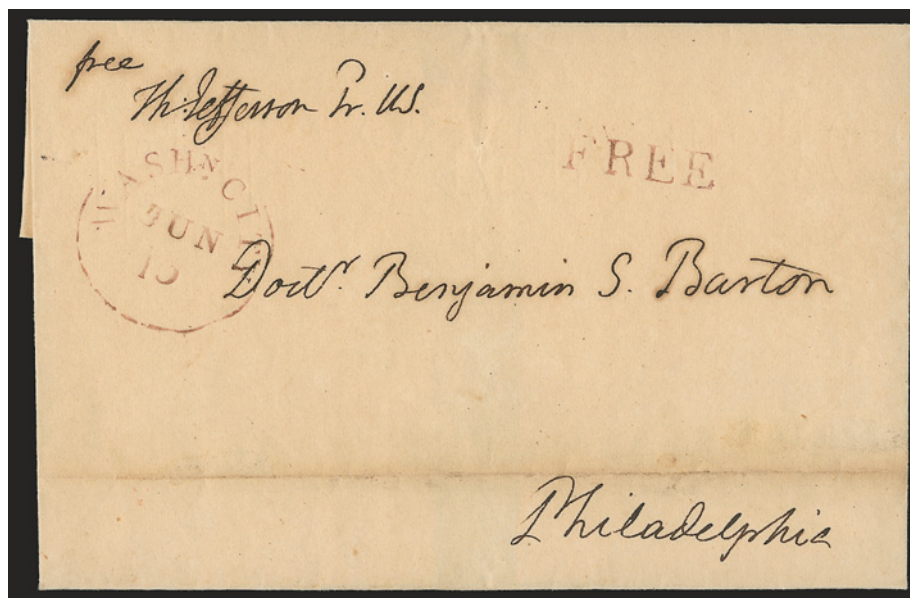 free
Th: Jefferson Pr. US.
FREE
WASHN. CITY
JUN
Doctr. Benjamin S. Barton
Philadelphia